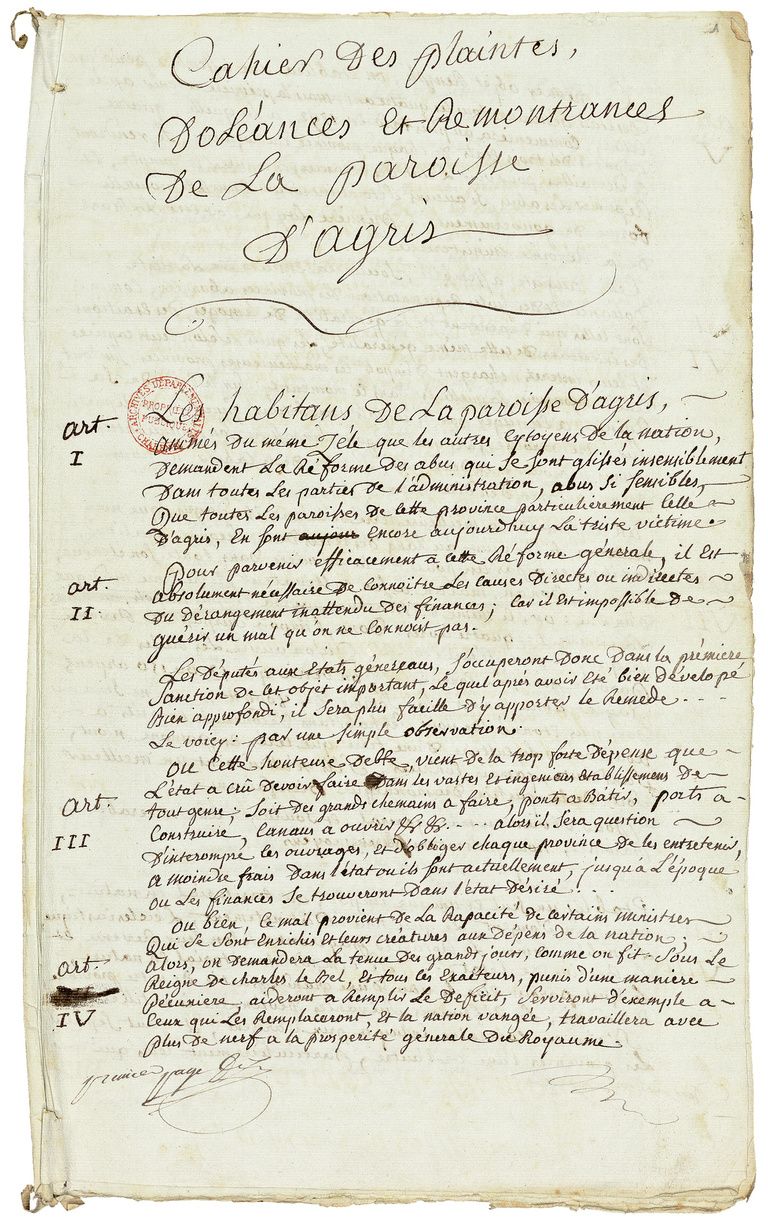 Cahier Des plaintes,
Doléances Et Remontrances
De La paroisse
D'agris
ARCHIVES DÉPARTEMENTALES
PROPRIÉTÉ
PUBLIQUE
Les habitans De La paroisse D'agris,
art.
I
animés Du méme Zéle que les autres Cytoyens de la nation,
Demandent La Réforme Des abus qui Se Sont glissés insensiblement
Dans toutes Les parties de l'administration, abus Si Sensibles,
Que toutes Les paroisses de Cette province particulièrement Celle
D'agris, En Sont aujour Encore aujourdhuy La triste victime.
art.
II.
Pour parvenir efficacement a Cette Réforme générale, il Est
absolument nécessaire De Connoître Les Causes Directes ou indirectes
Du dérangement inattendu Des finances; Car il Est impossible De
guérir un mal qu'on ne Connoist pas.
Les Députés aux Etats génereaux, S'occuperont Donc Dans la prémiere
Sanction de Cet objet important, Le quel aprés avois Eté bien dévelopé
Bien approfondi, il Sera plus facille D'y apporter Le Reméde . . .
Le voicy: par une Simple observation.
art.
III
Ou Cette honteuse Debte, vient de la trop forte Dépense que
L'état a Crû Devoir faire Dans les vastes Et ingenieux Etablissemens De
tout genre; Soit Des grands chemains a faire, ponts a Bâtir, ports a
Construire, Canaus a ouvrir &c &c. . . . alors il Sera question
D'interompre les ouvrages, et d'obliger chaque province de les entretenir,
a moindre frais Dans l'état ou ils Sont actuellement, jusqu'a L'époque
ou Les finances Se trouveront Dans l'état Désiré . . .
art.
IV
Ou bien, Ce mal provient De La Rapacité de Certains ministres
Qui Se Sont Enrichis Et leurs créatures aux Dépens de la nation;
alors, on Demandera La tenue Des grands jours, Comme on fit Sous Le
Reigne De charles le Bel, Et tous Ces Exacteurs, punis d'une maniere
Pécuniere, aideront a Remplir Le Deficit, Serviront d'exemple a
Ceux qui Les Remplaceront, Et la nation vangée, travaillera avec
plus De nerf a la prosperité générale Du Royaume.
premier page